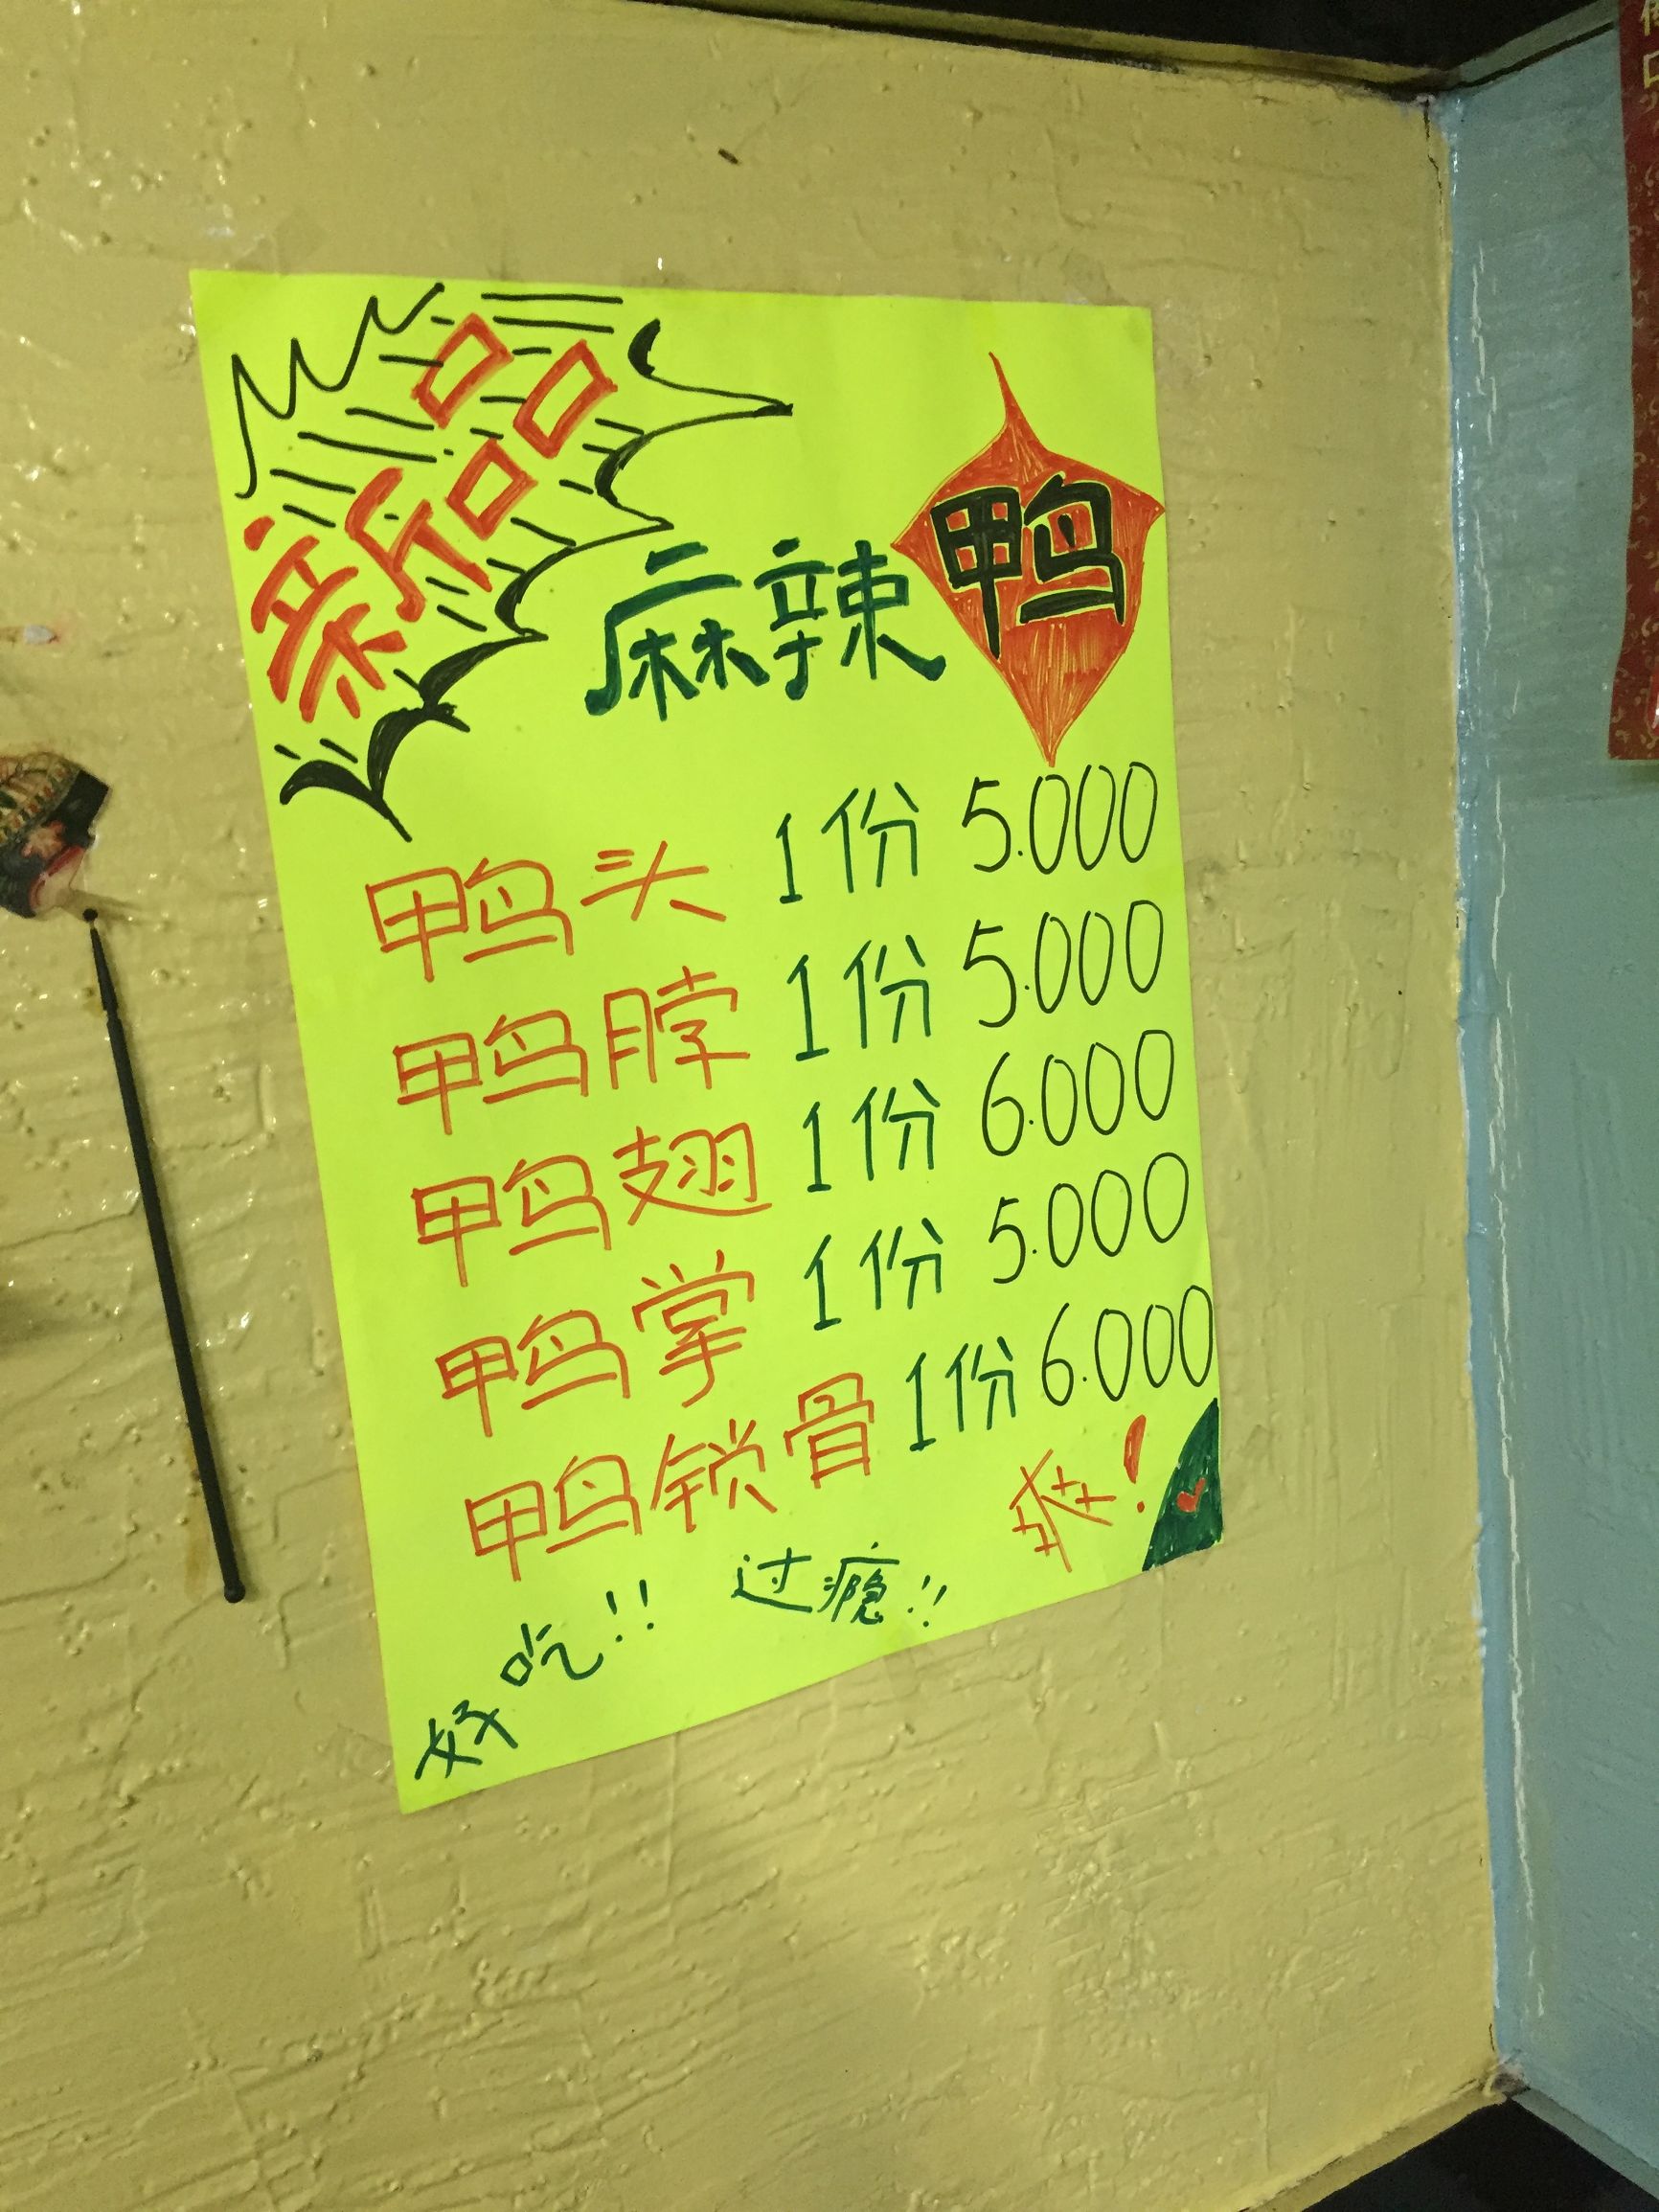 新品
麻辣鸭
鸭头 1份 5.000
鸭脖 1份 5.000
鸭翅 1份 6.000
鸭掌 1份 5.000
鸭锁骨 1份 6.000
好吃!! 过瘾!! 爽!